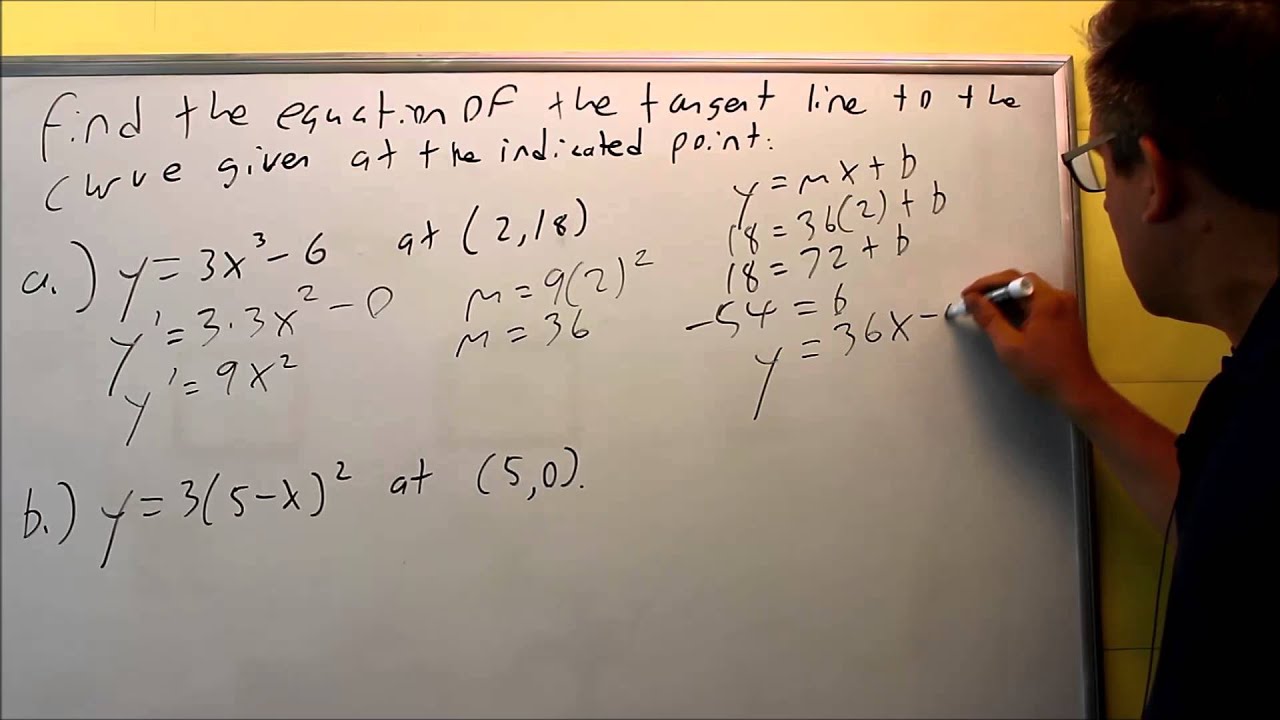 find the equation OF the tangent line to the
curve given at the indicated point:
a.) y = 3x³ - 6 at (2,18)
y' = 3·3x² - 0
y' = 9x²
m = 9(2)²
m = 36
y = mx + b
18 = 36(2) + b
18 = 72 + b
-54 = b
y = 36x -
b.) y = 3(5-x)² at (5,0).